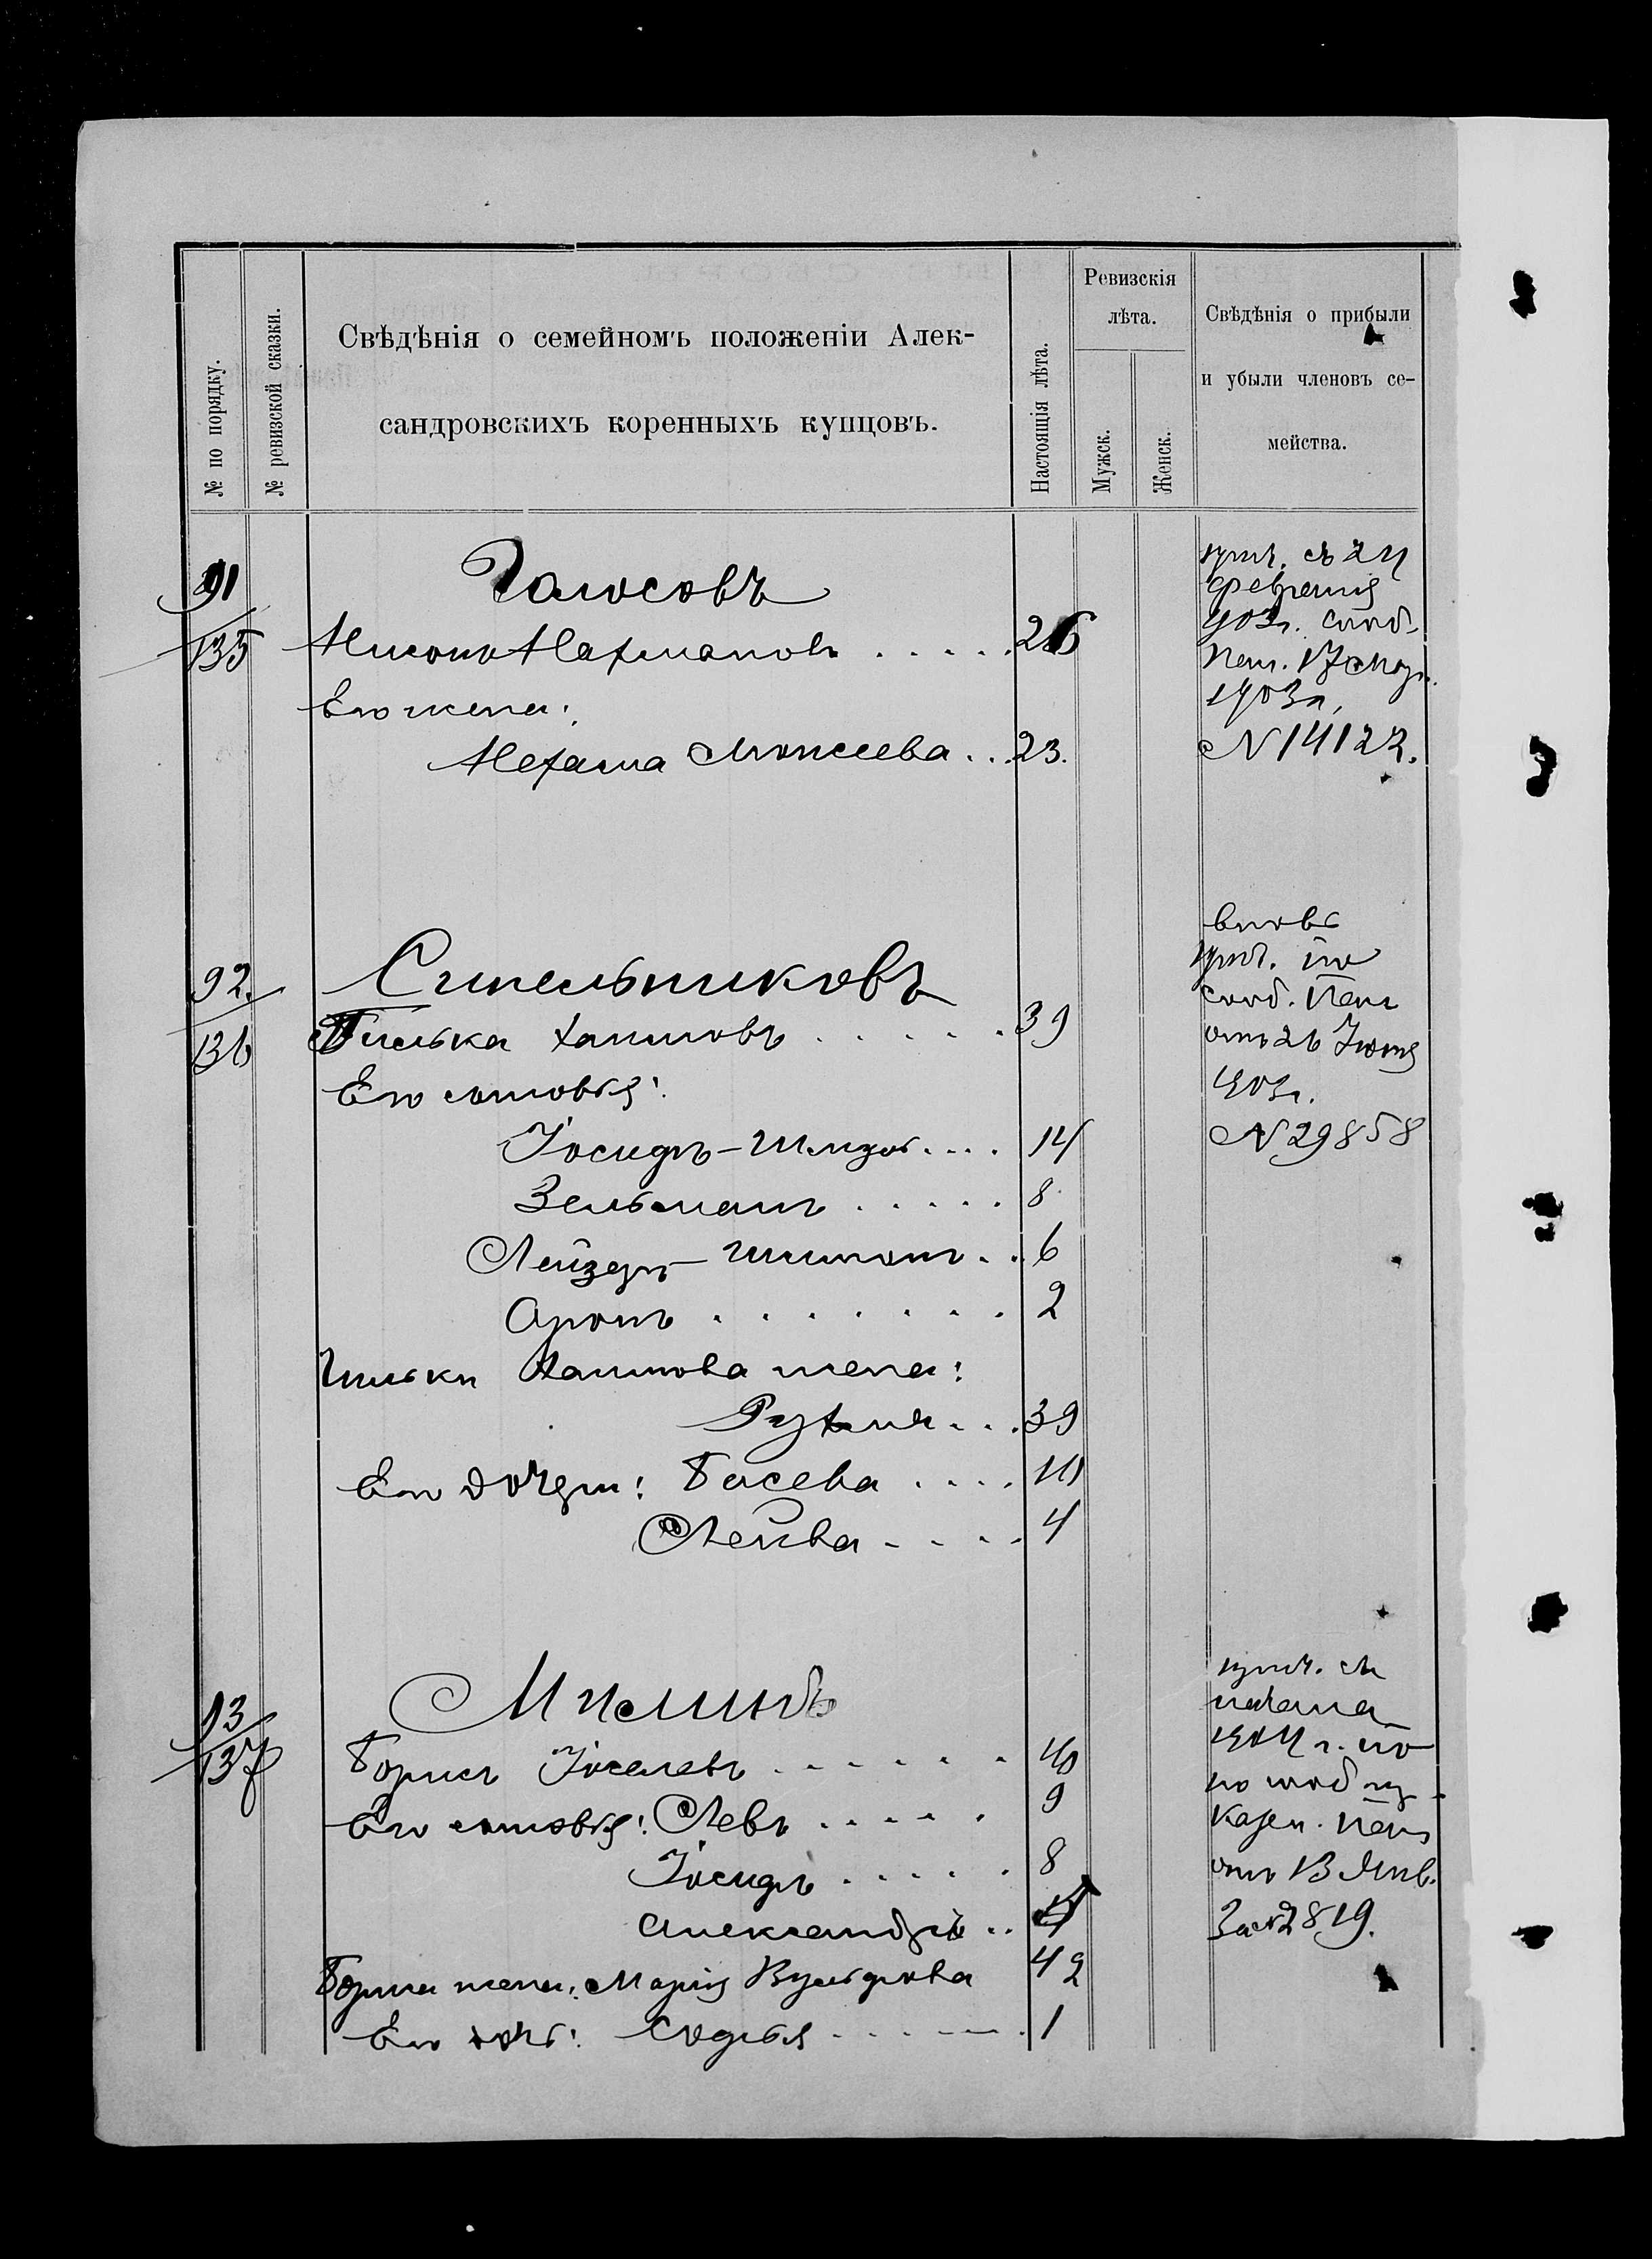 № по порядку.
№ ревизской сказки.
Свѣдѣнія о семейномъ положеніи Алек-
сандровскихъ коренныхъ купцовъ.
Настоящія лѣта.
Ревизскія
лѣта.
Мужск.
Женск.
Свѣдѣнія о прибыли
и убыли членовъ се-
мейства.
91
135
Голосовъ
Нисонъ Нахмановъ . . . . . 26
Его жена:
Нехама Моисеева . . 23.
прич. съ 24
февраля
903г. сооб.
Пал. 17 Мар.
1903г.
№ 14122.
92.
136
Синельниковъ
Гилька Хаимовъ . . . . . 39
Его сыновья:
Іосифъ-Шлиома . . . . 14
Зельманъ . . . . . 8
Лейзеръ-Шимонъ . . 6
Аронъ . . . . . . . . 2
Гильки Хаимова жена:
Рухля . . . 39
Его дочери: Басева . . . . 10
Лейва . . . . 4
вновь
прич. по
сооб. Пал.
отъ 26 Іюня
903г.
№ 29858
93
137
Милинъ
Борисъ Іоселевъ . . . . . . 40
Его сыновья: Левъ . . . . . 9
Іосифъ . . . . . 8
Александръ . .
Бориса жена: Марія Вульфова 42
Его дочь: Софья . . . . . . 1
прич. съ
начала
1904 г. по
по сооб
Казен. Пал.
отъ 13 Янв.
За № 2819.